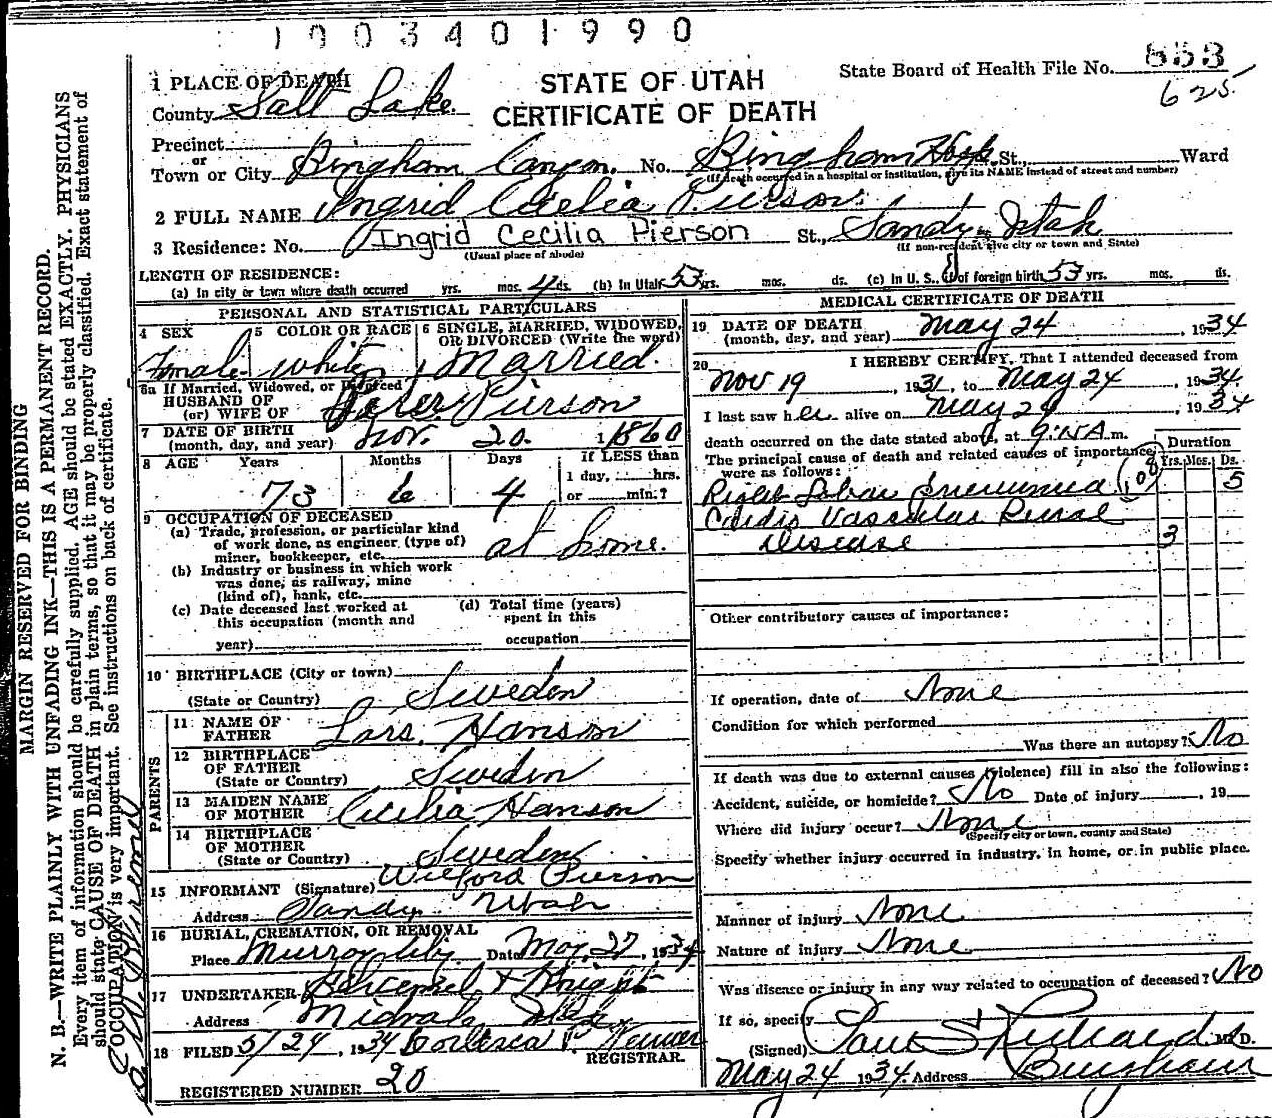 1003401990
STATE OF UTAH
CERTIFICATE OF DEATH
State Board of Health File No. 853
625
1 PLACE OF DEATH
County Salt Lake.
Precinct
or
Town or City Bingham Canyon. No. Bingham Hosp. St., Ward
(If death occurred in a hospital or institution, give its NAME instead of street and number)
2 FULL NAME Ingrid Cecilia Pierson.
3 Residence: No. Ingrid Cecilia Pierson St., Sandy, Utah
(Usual place of abode) (If non-resident give city or town and State)
LENGTH OF RESIDENCE:
(a) In city or town where death occurred yrs. mos. 4 ds. (b) In Utah 53 yrs. mos. ds. (c) In U. S., if of foreign birth 53 yrs. mos. ds.
PERSONAL AND STATISTICAL PARTICULARS
4 SEX 5 COLOR OR RACE 6 SINGLE, MARRIED, WIDOWED, OR DIVORCED (Write the word)
Female white Married.
6a If Married, Widowed, or Divorced
HUSBAND OF
(or) WIFE OF Peter Pierson
7 DATE OF BIRTH
(month, day, and year) Nov. 20. 1860
8 AGE Years Months Days If LESS than
1 day, hrs.
or min.?
73 6 4
9 OCCUPATION OF DECEASED
(a) Trade, profession, or particular kind
of work done, as engineer, (type of)
miner, bookkeeper, etc. at home.
(b) Industry or business in which work
was done, as railway, mine
(kind of), bank, etc.
(c) Date deceased last worked at
this occupation (month and
year)
(d) Total time (years)
spent in this
occupation
10 BIRTHPLACE (City or town)
(State or Country) Sweden
PARENTS
11 NAME OF
FATHER Lars. Hanson
12 BIRTHPLACE
OF FATHER
(State or Country) Sweden
13 MAIDEN NAME
OF MOTHER Cecilia Hanson
14 BIRTHPLACE
OF MOTHER
(State or Country) Sweden
15 INFORMANT (Signature) Wilford Pierson
Address Sandy Utah
16 BURIAL, CREMATION, OR REMOVAL
Place Murray City. Date May 27, 1934
17 UNDERTAKER & Knight
Address Midvale Utah
18 FILED 5/24, 1934
REGISTRAR.
REGISTERED NUMBER 20
MEDICAL CERTIFICATE OF DEATH
19 DATE OF DEATH
(month, day, and year) May 24, 1934
20 I HEREBY CERTIFY, That I attended deceased from
Nov 19, 1931, to May 24, 1934.
I last saw her alive on May 24, 1934
death occurred on the date stated above, at 9:15 A m.
The principal cause of death and related causes of importance
were as follows:
Duration
Yrs. Mos. Ds.
Right Lobar Pneumonia 108 5
Cardio Vascular Renal
Disease 3
Other contributory causes of importance:
If operation, date of None
Condition for which performed
Was there an autopsy? No
If death was due to external causes (violence) fill in also the following:
Accident, suicide, or homicide? No Date of injury , 19
Where did injury occur? None
(Specify city or town, county and State)
Specify whether injury occurred in industry, in home, or in public place.
Manner of injury None
Nature of injury None
Was disease or injury in any way related to occupation of deceased? No
If so, specify
(Signed) Paul S Richards M. D.
May 24 1934. Address Bingham
MARGIN RESERVED FOR BINDING
N. B.—WRITE PLAINLY WITH UNFADING INK—THIS IS A PERMANENT RECORD.
Every item of information should be carefully supplied. AGE should be stated EXACTLY. PHYSICIANS
should state CAUSE OF DEATH in plain terms, so that it may be properly classified. Exact statement of
OCCUPATION is very important. See instructions on back of certificate.